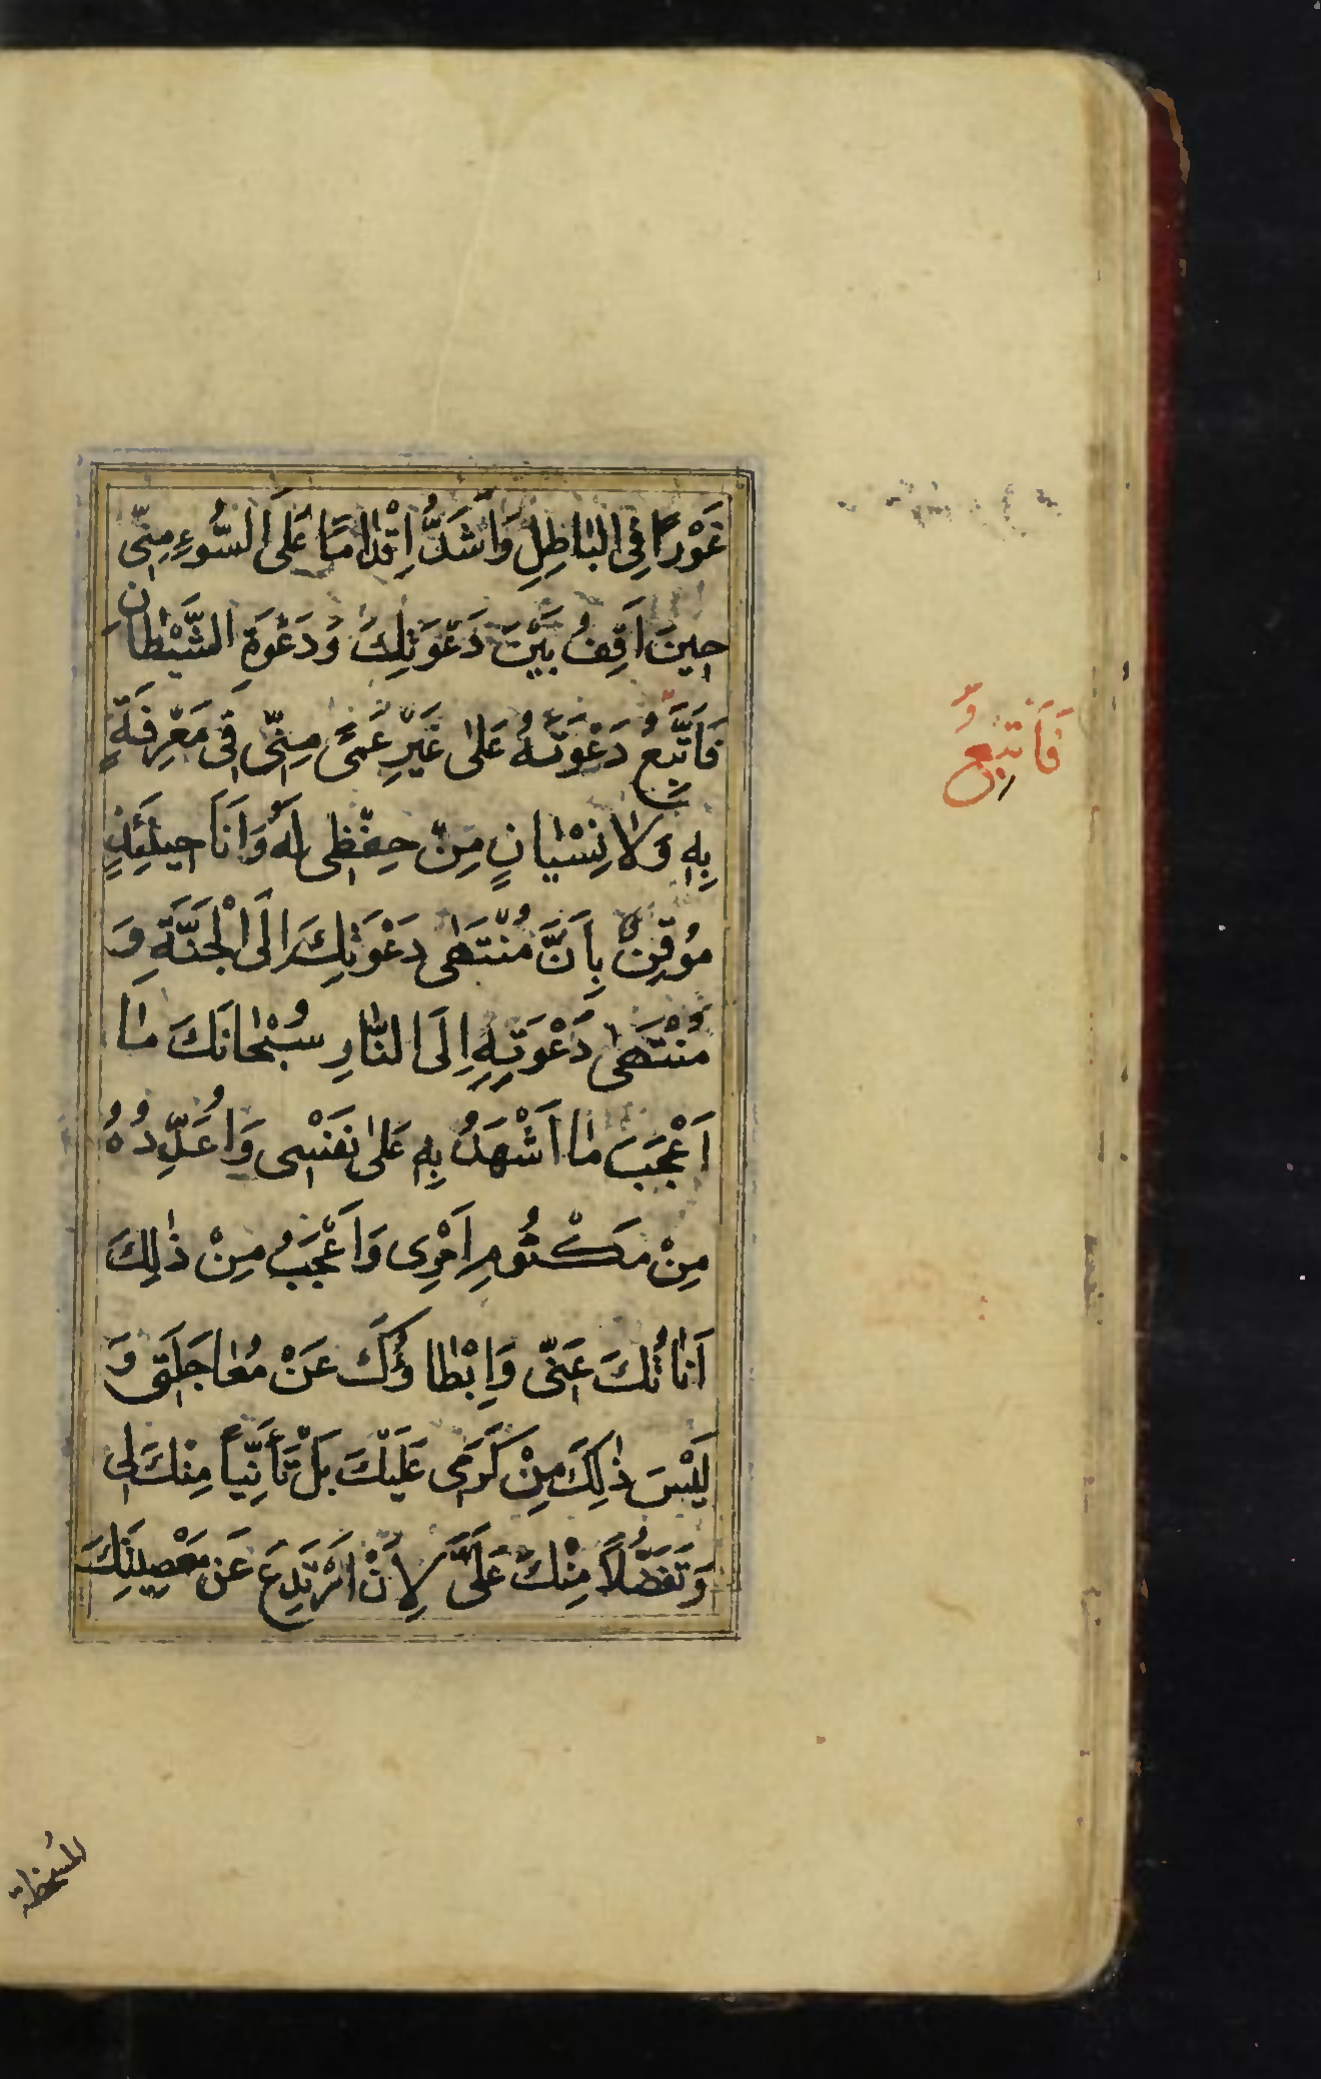 غَوْرًا فِي الْبَاطِلِ وَاَشَدُّ اِقْدَامًا عَلَى السُّوءِ مِنّي
حِينَ اَقِفُ بَيْنَ دَعْوَتِكَ وَدَعْوَةِ الشَّيْطَانِ
فَاَتَّبِعُ دَعْوَتَهُ عَلٰى غَيْرِ عَمًى مِنّي فِي مَعْرِفَةٍ
بِهِ وَلَا نِسْيَانٍ مِنْ حِفْظِي لَهُ وَاَنَا حِينَئِذٍ
مُوقِنٌ بِاَنَّ مُنْتَهٰى دَعْوَتِكَ اِلَى الْجَنَّةِ وَ
مُنْتَهٰى دَعْوَتِهِ اِلَى النَّارِ سُبْحَانَكَ مَا
اَعْجَبَ مَا اَشْهَدُ بِهِ عَلٰى نَفْسِي وَاُعَدِّدُهُ
مِنْ مَكْتُومِ اَمْرِي وَاَعْجَبُ مِنْ ذٰلِكَ
اَنَاتُكَ عَنّي وَاِبْطَاؤُكَ عَنْ مُعَاجَلَتِي وَ
لَيْسَ ذٰلِكَ مِنْ كَرَمِي عَلَيْكَ بَلْ تَأَنِّيًا مِنْكَ لِي
وَتَفَضُّلًا مِنْكَ عَلَيَّ لِاَنْ اَرْتَدِعَ عَنْ مَعْصِيَتِكَ
فَاَتَّبِعُ
الْمُسْخِطَةِ